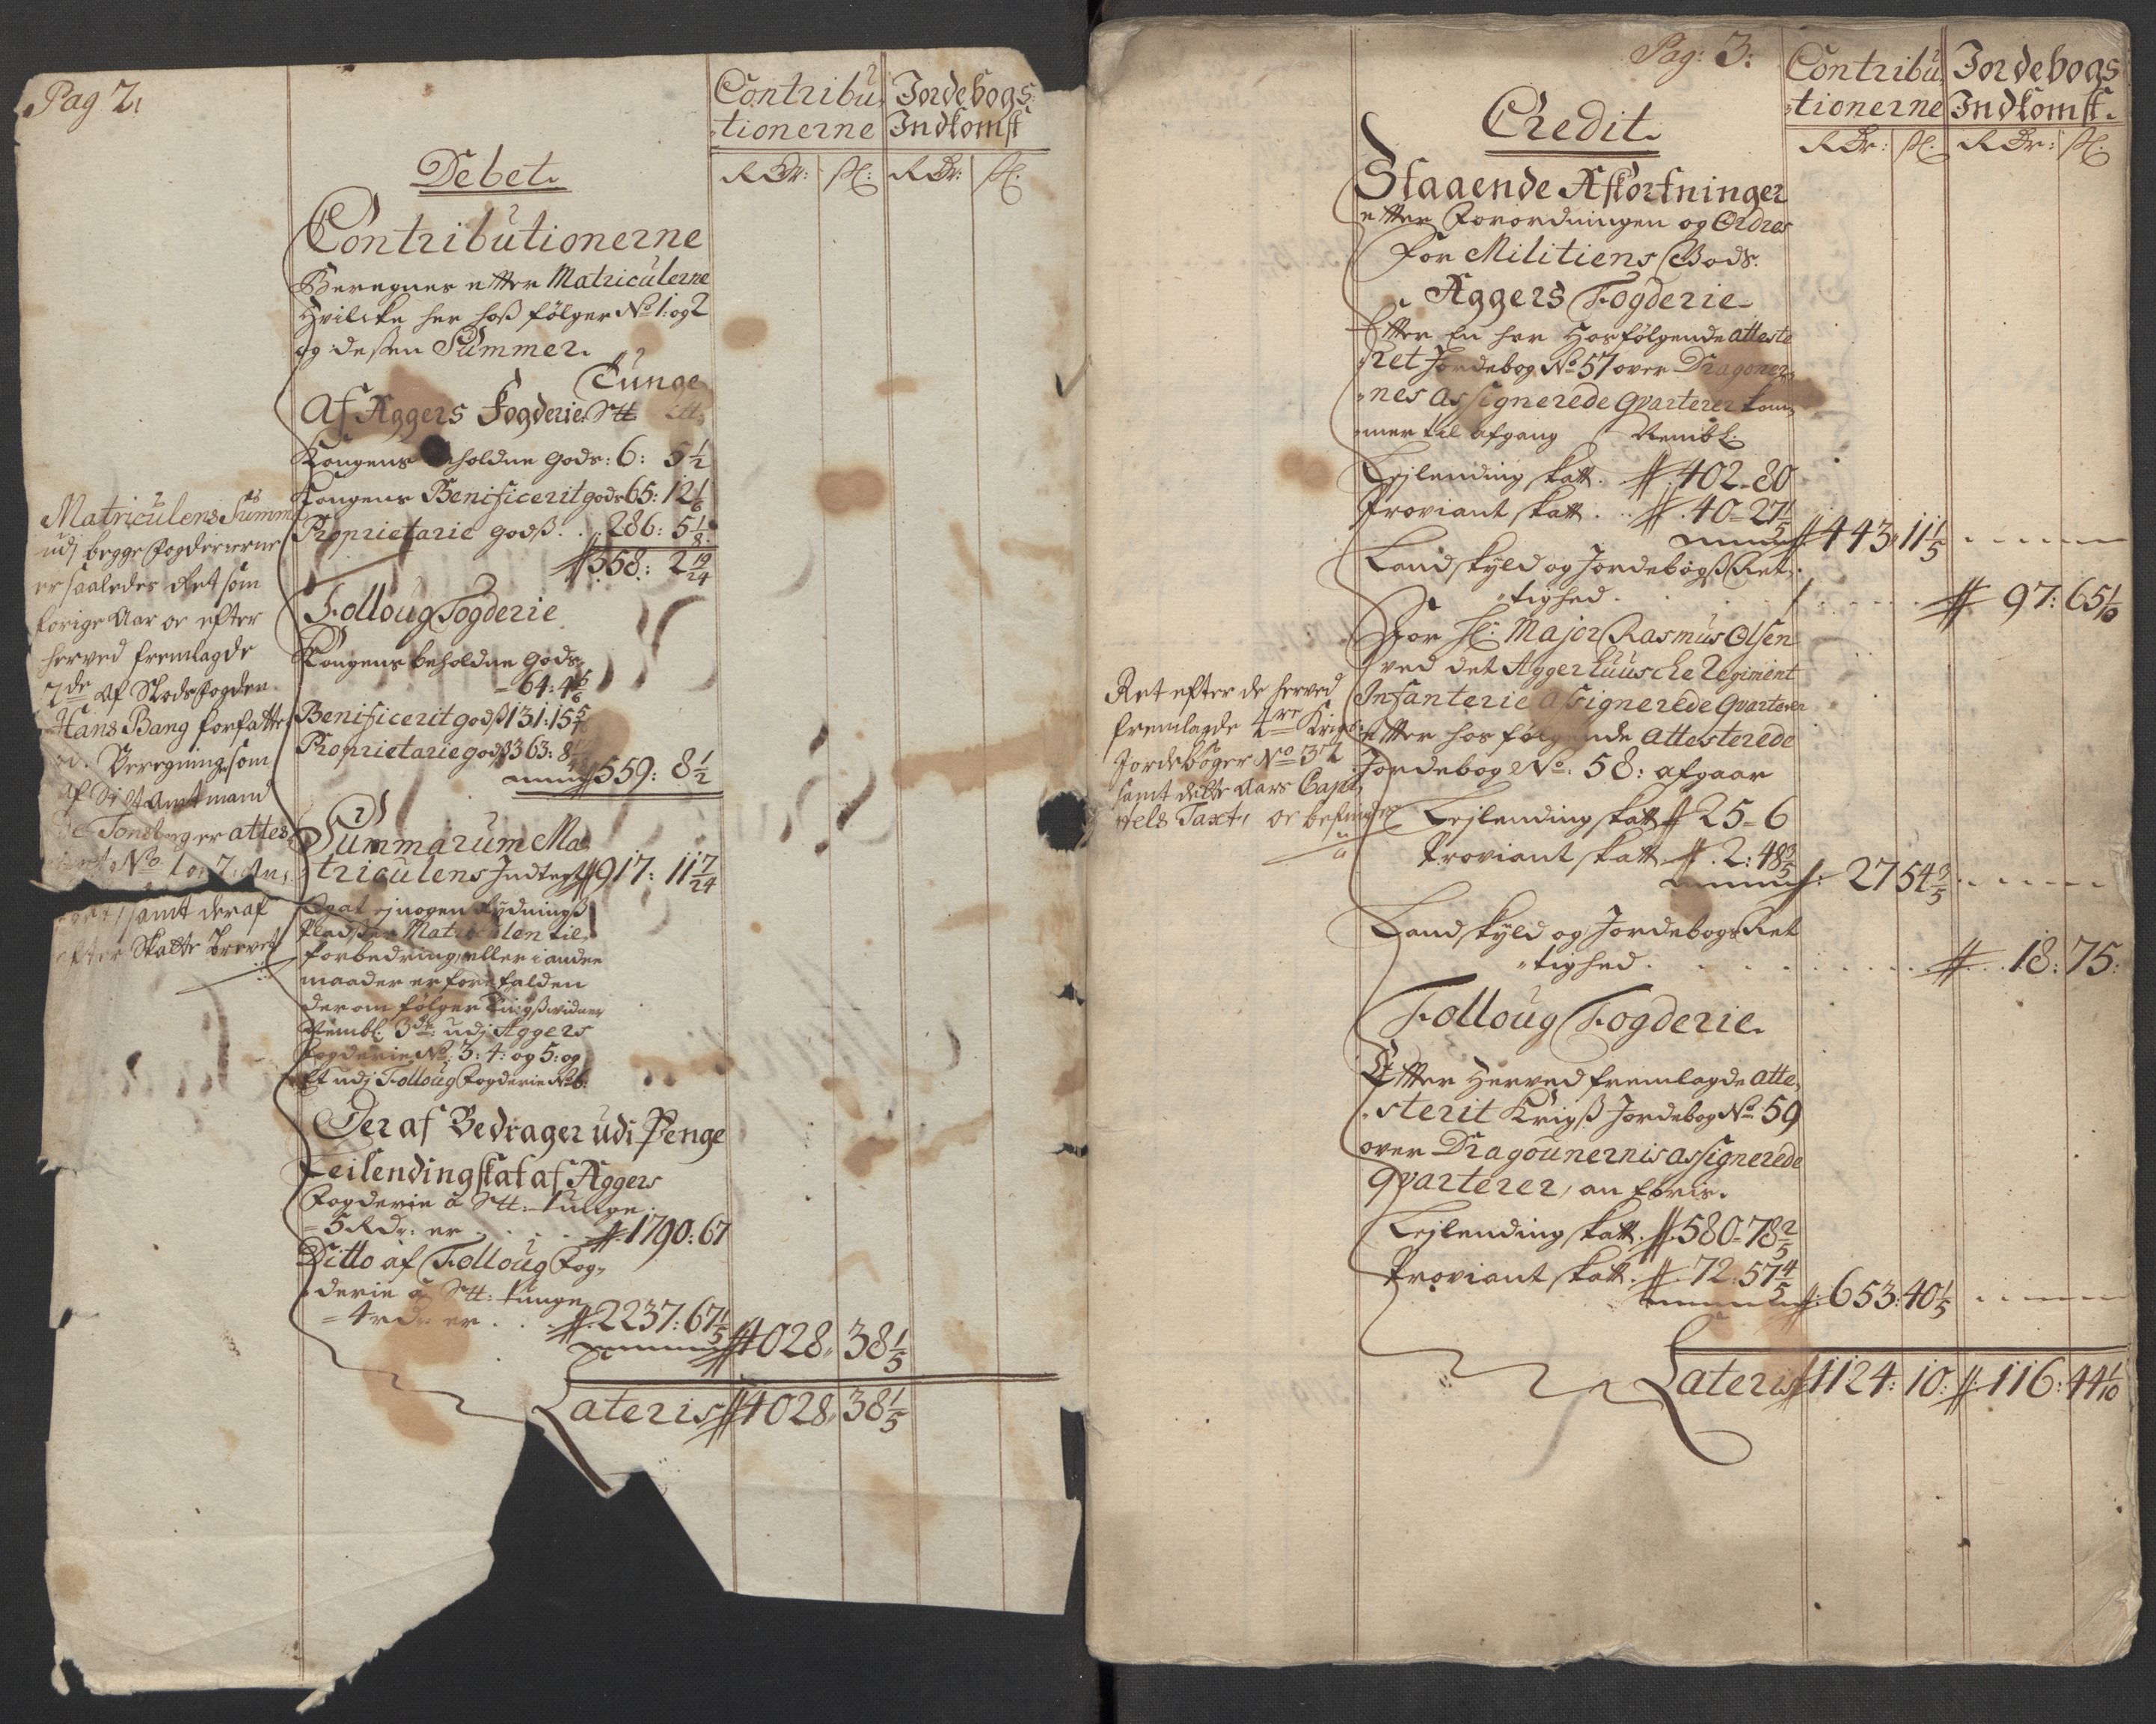 Pag 2.
Contribu-
tionerne
Jordebogs
Indkomst
Rdr: ß: Rdr: ß:
Debet.
Contributionerne
Beregnes efter Matriculerne
Hvilcke her hoß følger No 1: og 2
og deßen Summer.
Tunge
Af Aggers Fogderie Sk
Kongens beholdne Gods: 6: 5 1/2
Kongens Benificerit gods 65: 12 1/6
Proprietarie godß . . 286: 5 1/8
358: 2 19/24
Folloug Fogderie
Kongens beholdne Gods
64: 4 5/6
Benificerit godß 131: 15 5/6
Proprietarie godß 363: 8
559: 8 1/2
Summarum Ma-
triculens Indtegt 917: 11 7/24
Og at ej nogen Rydningß
Pladser Matriculen til
forbedring eller i andre
maader er forefalden
derom følger Tingßwidner
Nembl. 3de udj Aggers
Fogderie No: 3: 4: og 5: og
Et udj Folloug Fogderie No 6:
Der af Bedrager udi Penge
Leilendingskat af Aggers
Fogderie à Sk: tunge
5 Rdr: er . . . 1790: 67
Ditto af Folloug Fog-
derie à Sk: tunge
4 rdr: er . . . 2237: 67 1/5
4028 38 1/5
Lateris 4028 38 1/5
Matriculens Summa
udj begge Fogderierne
er saaledes Ret som
forige Aar oc efter
herved fremlagde
7de af Slodsfogden
Hans Bang forfatte
Beregning som
af Stiftamtmand
de Tonsberg er attes-
No 1 og 7:
samt deraf
efter Skatte Brevet
Pag: 3:
Contribu-
tionerne
Jordebogs
Indkomst.
Rdr: ß: Rdr: ß:
Credit.
Staaende Afkortninger
efter Forordningen og Ordres
for Militiens Gods.
Aggers Fogderie
Efter En her Hosfølgende atteste
ret Jordebog No 57 over Dragoner-
nes assignerede Qvarterer kom-
mer til afgang Nembl:
Lejlending skatt. 402 - 80
Proviant skatt . . 40 - 27 1/5
443 11 1/5
Land skyld og Jordebogß Ret-
tighed . . . 97: 65 1/10
For Hr: Major Rasmus Olsen
ved det Aggerhuusche Regiment
Infanterie assignerede Qvarterer
efter hos følgende attesterede
Jordebog No: 58: afgaar
Lejlending skatt 25 - 6
Proviant skatt . 2: 48 3/5
27 54 3/5
Land skyld og Jordebogs Ret
tighed . . . 18: 75:
Folloug Fogderie.
Efter Herved fremlagde atte-
sterit Krigß Jordebog No 59
over Dragounernis assignerede
Qvarterer,
Lejlending skatt. 580 - 78 2/5
Proviant skatt . 72: 57 4/5
653: 40 1/5
Lateris 1124: 10: 116: 44 1/10
Ret efter de herved
fremlagde 4re Krigs
Jordebøger No 57
samt dette Aars Capi-
tels Taxt, oc befindes